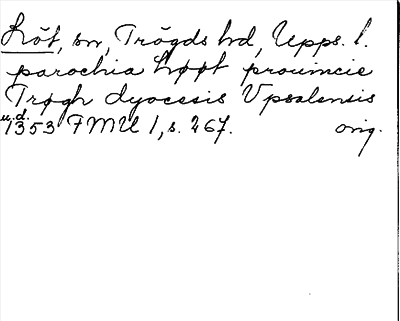 Löt, sn, Trögds hd, Upps. l.
parochia Løøt prouincie
Trøgh dyocesis Vpsalensis
u.d.
1353 FMU 1, s. 267. orig.